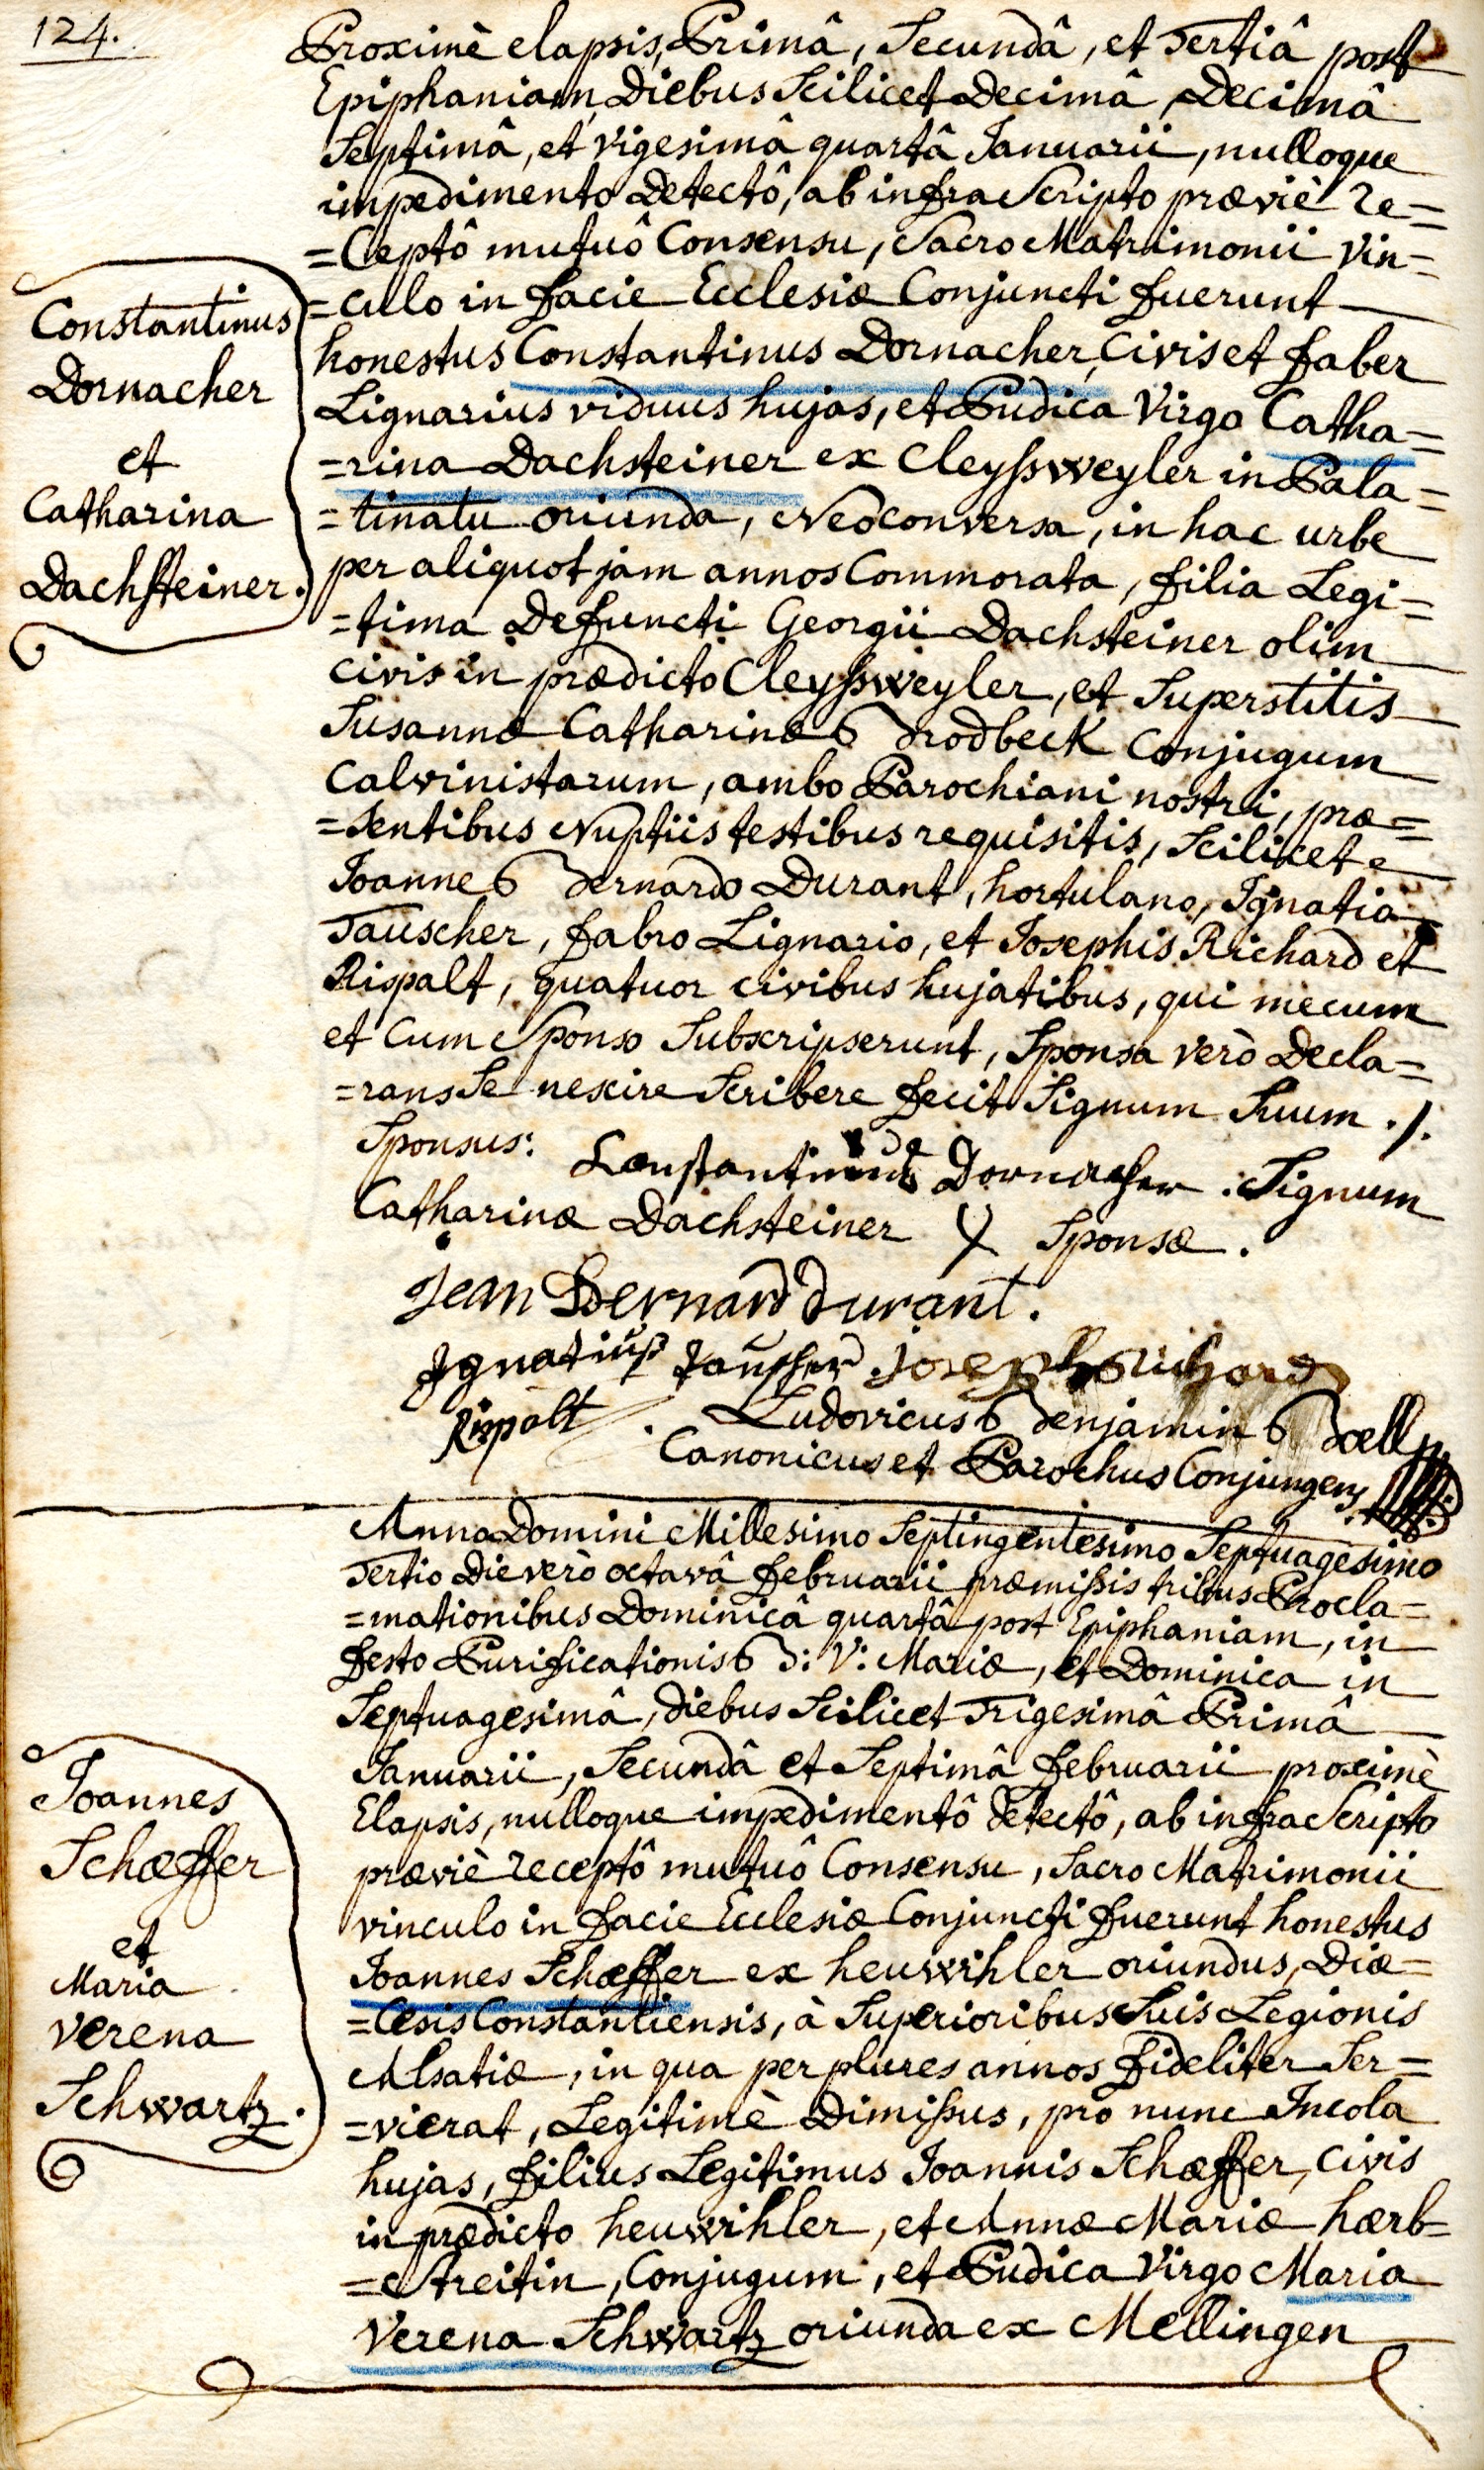 124.
Proximè elapsis, Primâ, Secundâ, et Tertiâ post
Epiphaniam, Diebus Scilicet Decimâ, Decimâ
Septimâ, et vigesimâ quartâ Januarii, nulloque
impedimento Detectô, ab infra Scripto præviè re=
=Ceptô mutuô Consensu, Sacro Matrimonii Vin=
=culo in facie Ecclesiæ Conjuncti fuerunt
honestus Constantinus Dornacher, Civis et faber
Lignarius viduus hujas, et Pudica Virgo Catha=
=rina Dachsteiner ex Cleyssweyler in Pala=
=tinatu oriunda, Neoconversa, in hac urbe
per aliquot jam annos Commorata, filia Legi=
=tima Defuncti Georgii Dachsteiner olim
Civis in prædicto Cleyssweyler, et Superstitis
Susannæ Catharinæ Brodbeck Conjugum
Calvinistarum, ambo Parochiani nostri, præ=
=Sentibus Nuptiis testibus requisitis, Scilicet
Joanne Bernardo Durant, hortulano, Ignatio
Tauscher, fabro Lignario, et Josephis Richard et
Rispalt, quatuor civibus hujatibus, qui mecum
et Cum Sponso Subscripserunt, Sponsa verò Decla=
=rans Se nescire Scribere fecit Signum Suum ./.
Sponsus: Constantinus Dornacher . Signum
Catharinæ Dachsteiner X Sponsæ .
Jean Bernard Durant .
Ignatius Tauscher Joseph Richard
Rispalt . Ludovicus Benjamin Bœll
Canonicus et Parochus Conjungens
Constantinus
Dornacher
et
Catharina
Dachsteiner.
Anno Domini Millesimo Septingentesimo Septuagesimo
Tertio Die verò octavâ februarii præmissis tribus Procla=
=mationibus Dominicâ quartâ post Epiphaniam, in
festo Purificationis B: V: Mariæ, et Dominica in
Septuagesimâ, Diebus Scilicet Trigesimâ Primâ
Januarii, Secundâ et Septimâ februarii proximè
Elapsis, nulloque impedimentô detectô, ab infra Scripto
præviè receptô mutuô Consensu, Sacro Matrimonii
vinculo in facie Ecclesiæ Conjuncti fuerunt honestus
Joannes Schæffer ex heuwihler oriundus, Diæ=
=Cesis Constantiensis, à Superioribus Suis Legionis
Alsatiæ, in qua per plures annos fideliter Ser=
=vierat, Legitimè Dimissus, pro nunc Incola
hujas, filius Legitimus Joannis Schæffer, civis
in prædicto heuwihler, et Annæ Mariæ hærb=
=Streitin, Conjugum, et Pudica Virgo Maria
Verena Schwartz oriunda ex Mellingen
Joannes
Schæffer
et
Maria
Verena
Schwartz.